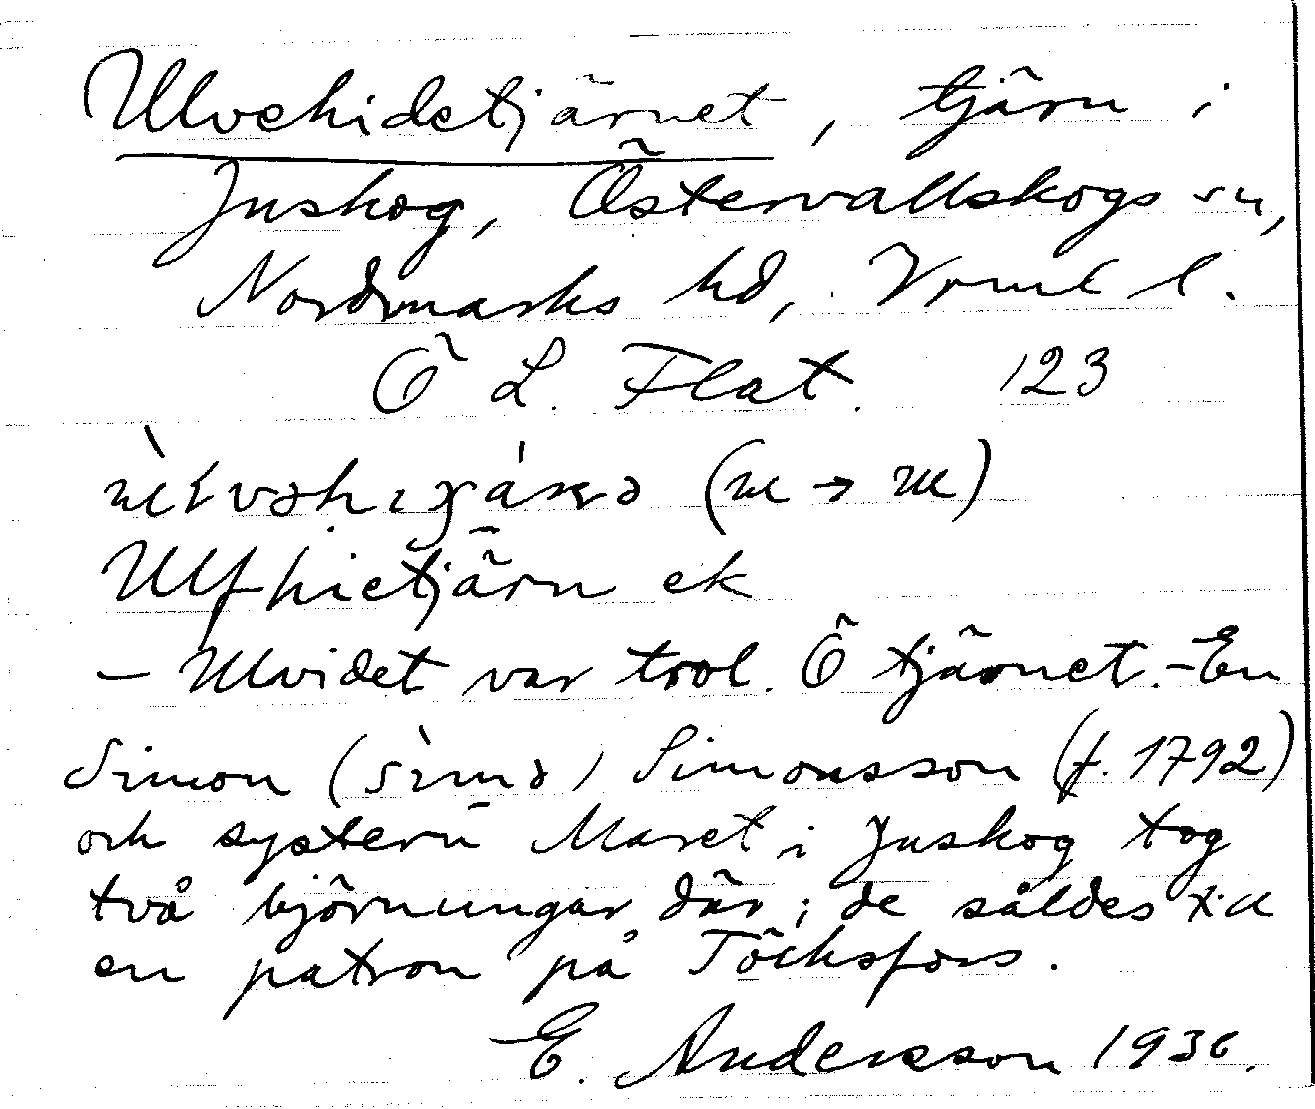 Ulvehidetjärnet, tjärn i
Juskog, Östervallskogs sn,
Nordmarks hd, Vrml l.
Ö L. Flat. 123
(m → m)
Ulfhietjärn ek
— Ulvidet var trol. Ö tjärnet. – En
Simon (sìmə) Simonsson (f. 1792)
och systern Maret i Juskog tog
två björnungar där; de såldes till
en patron på Töcksfors.
E. Andersson 1936.